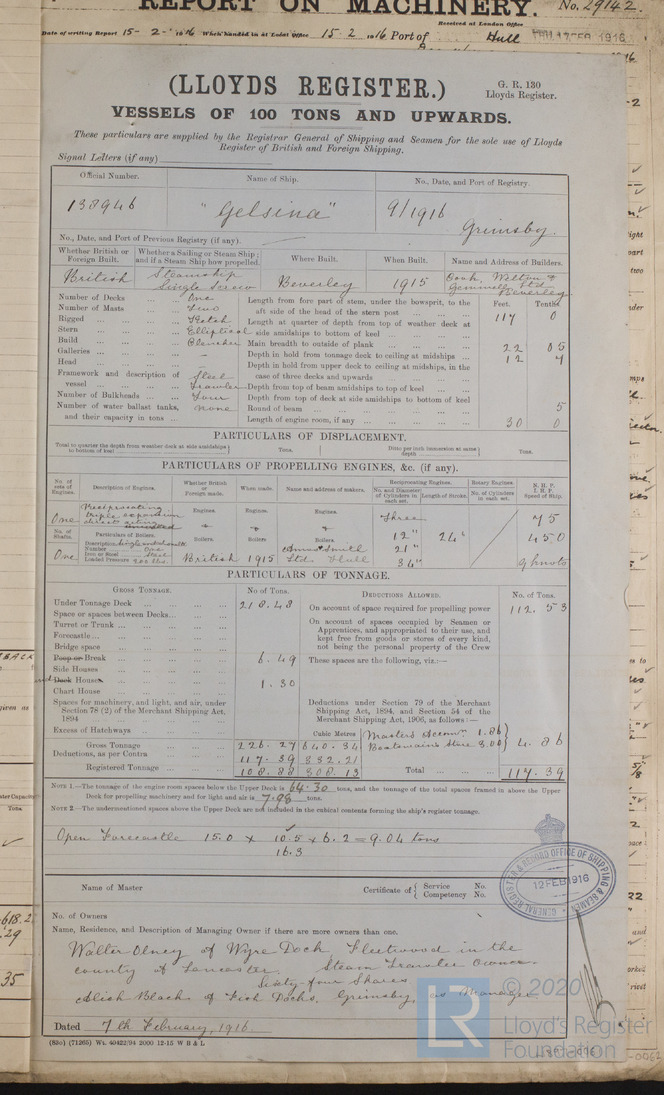 REPORT ON MACHINERY. No. 29142
Received at London Office
Date of writing Report 15-2-1916 When handed in at Local Office 15.2.1916 Port of Hull THU. 17 FEB 1916
(LLOYDS REGISTER.)
G. R. 130
Lloyds Register.
VESSELS OF 100 TONS AND UPWARDS.
These particulars are supplied by the Registrar General of Shipping and Seamen for the sole use of Lloyds
Register of British and Foreign Shipping.
Signal Letters (if any)
Official Number. Name of Ship. No., Date, and Port of Registry.
138946 "Gelsina" 9/1916
Grimsby.
No., Date, and Port of Previous Registry (if any).
Whether British or Foreign Built. Whether a Sailing or Steam Ship; and if a Steam Ship how propelled. Where Built. When Built. Name and Address of Builders.
British Steamship Single Screw Beverley 1915 Cook, Welton & Gemmell Ltd Beverley
Number of Decks One
Number of Masts Two
Rigged Ketch
Stern Elliptical
Build Clencher
Galleries –
Head –
Framework and description of vessel Steel Trawler
Number of Bulkheads Four
Number of water ballast tanks, and their capacity in tons None
Feet. Tenths
Length from fore part of stem, under the bowsprit, to the aft side of the head of the stern post 117 0
Length at quarter of depth from top of weather deck at side amidships to bottom of keel
Main breadth to outside of plank 22 05
Depth in hold from tonnage deck to ceiling at midships 12 7
Depth in hold from upper deck to ceiling at midships, in the case of three decks and upwards
Depth from top of beam amidships to top of keel
Depth from top of deck at side amidships to bottom of keel
Round of beam 5
Length of engine room, if any 30 0
PARTICULARS OF DISPLACEMENT.
Total to quarter the depth from weather deck at side amidships to bottom of keel Tons. Ditto per inch immersion at same depth Tons.
PARTICULARS OF PROPELLING ENGINES, &c. (if any).
No. of sets of Engines. Description of Engines. Whether British or Foreign made. When made. Name and address of makers. Reciprocating Engines. Rotary Engines. N. H. P. I. H. P. Speed of Ship.
No. and Diameter of Cylinders in each set. Length of Stroke. No. of Cylinders in each set.
One Reciprocating triple expansion direct acting Engines. Engines. Engines. Three 75
No. of Shafts. Particulars of Boilers. Boilers. Boilers. Boilers. 12" 24" 450
Description
Number One
Iron or Steel Steel
Loaded Pressure 200 lbs.
One British 1915 Amos & Smith Ltd. Hull 21" 34" 9 knots
PARTICULARS OF TONNAGE.
GROSS TONNAGE. No. of Tons. DEDUCTIONS ALLOWED. No. of Tons.
Under Tonnage Deck 218.48
Space or spaces between Decks
Turret or Trunk
Forecastle
Bridge space
Poop or Break 6.49
Side Houses
Deck Houses 1.30
Chart House
Spaces for machinery, and light, and air, under Section 78 (2) of the Merchant Shipping Act, 1894
Excess of Hatchways
On account of space required for propelling power 112.53
On account of spaces occupied by Seamen or Apprentices, and appropriated to their use, and kept free from goods or stores of every kind, not being the personal property of the Crew
These spaces are the following, viz.:—
Deductions under Section 79 of the Merchant Shipping Act, 1894, and Section 54 of the Merchant Shipping Act, 1906, as follows:—
Cubic Metres Masters Accomn. 1.86
Boatswains Store 3.00 4.86
Gross Tonnage 226.27 640.34
Deductions, as per Contra 117.39 332.21
Registered Tonnage 108.88 308.13
Total 117.39
NOTE 1.—The tonnage of the engine room spaces below the Upper Deck is 64.30 tons, and the tonnage of the total spaces framed in above the Upper
Deck for propelling machinery and for light and air is 7.98 tons.
NOTE 2.—The undermentioned spaces above the Upper Deck are not included in the cubical contents forming the ship's register tonnage.
Open Forecastle 15.0 x 10.5 x 6.2 = 9.04 tons
16.3
Name of Master Certificate of { Service No. Competency No.
No. of Owners
Name, Residence, and Description of Managing Owner if there are more owners than one.
Walter Olney of Wyre Dock Fleetwood in the
county of Lancaster. Steam Trawler Owner
Sixty-four Shares
Alick Black of Fish Docks, Grimsby, as Manager
Dated 7th February, 1916.
(83o) (71265) Wt. 40422/94 2000 12-15 W B & L
GENERAL REGISTER & RECORD OFFICE OF SHIPPING & SEAMEN
12 FEB 1916
© 2020
LR
Lloyd's Register
Foundation